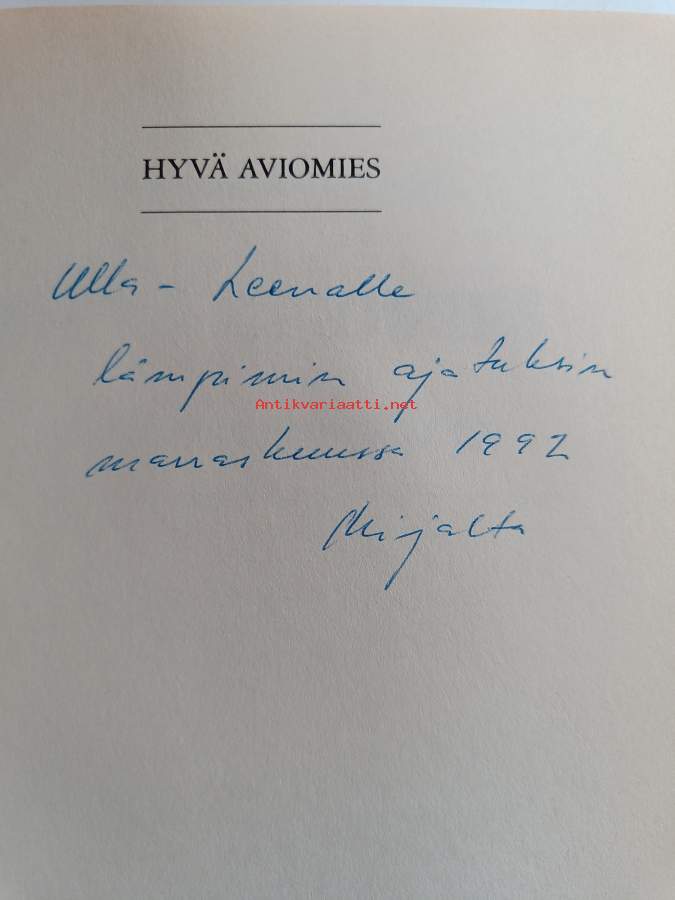 HYVÄ AVIOMIES
Ulla - Leenalle
lämpimin ajatuksin
Antikvariaatti.net
marraskuussa 1992
Mirjalta